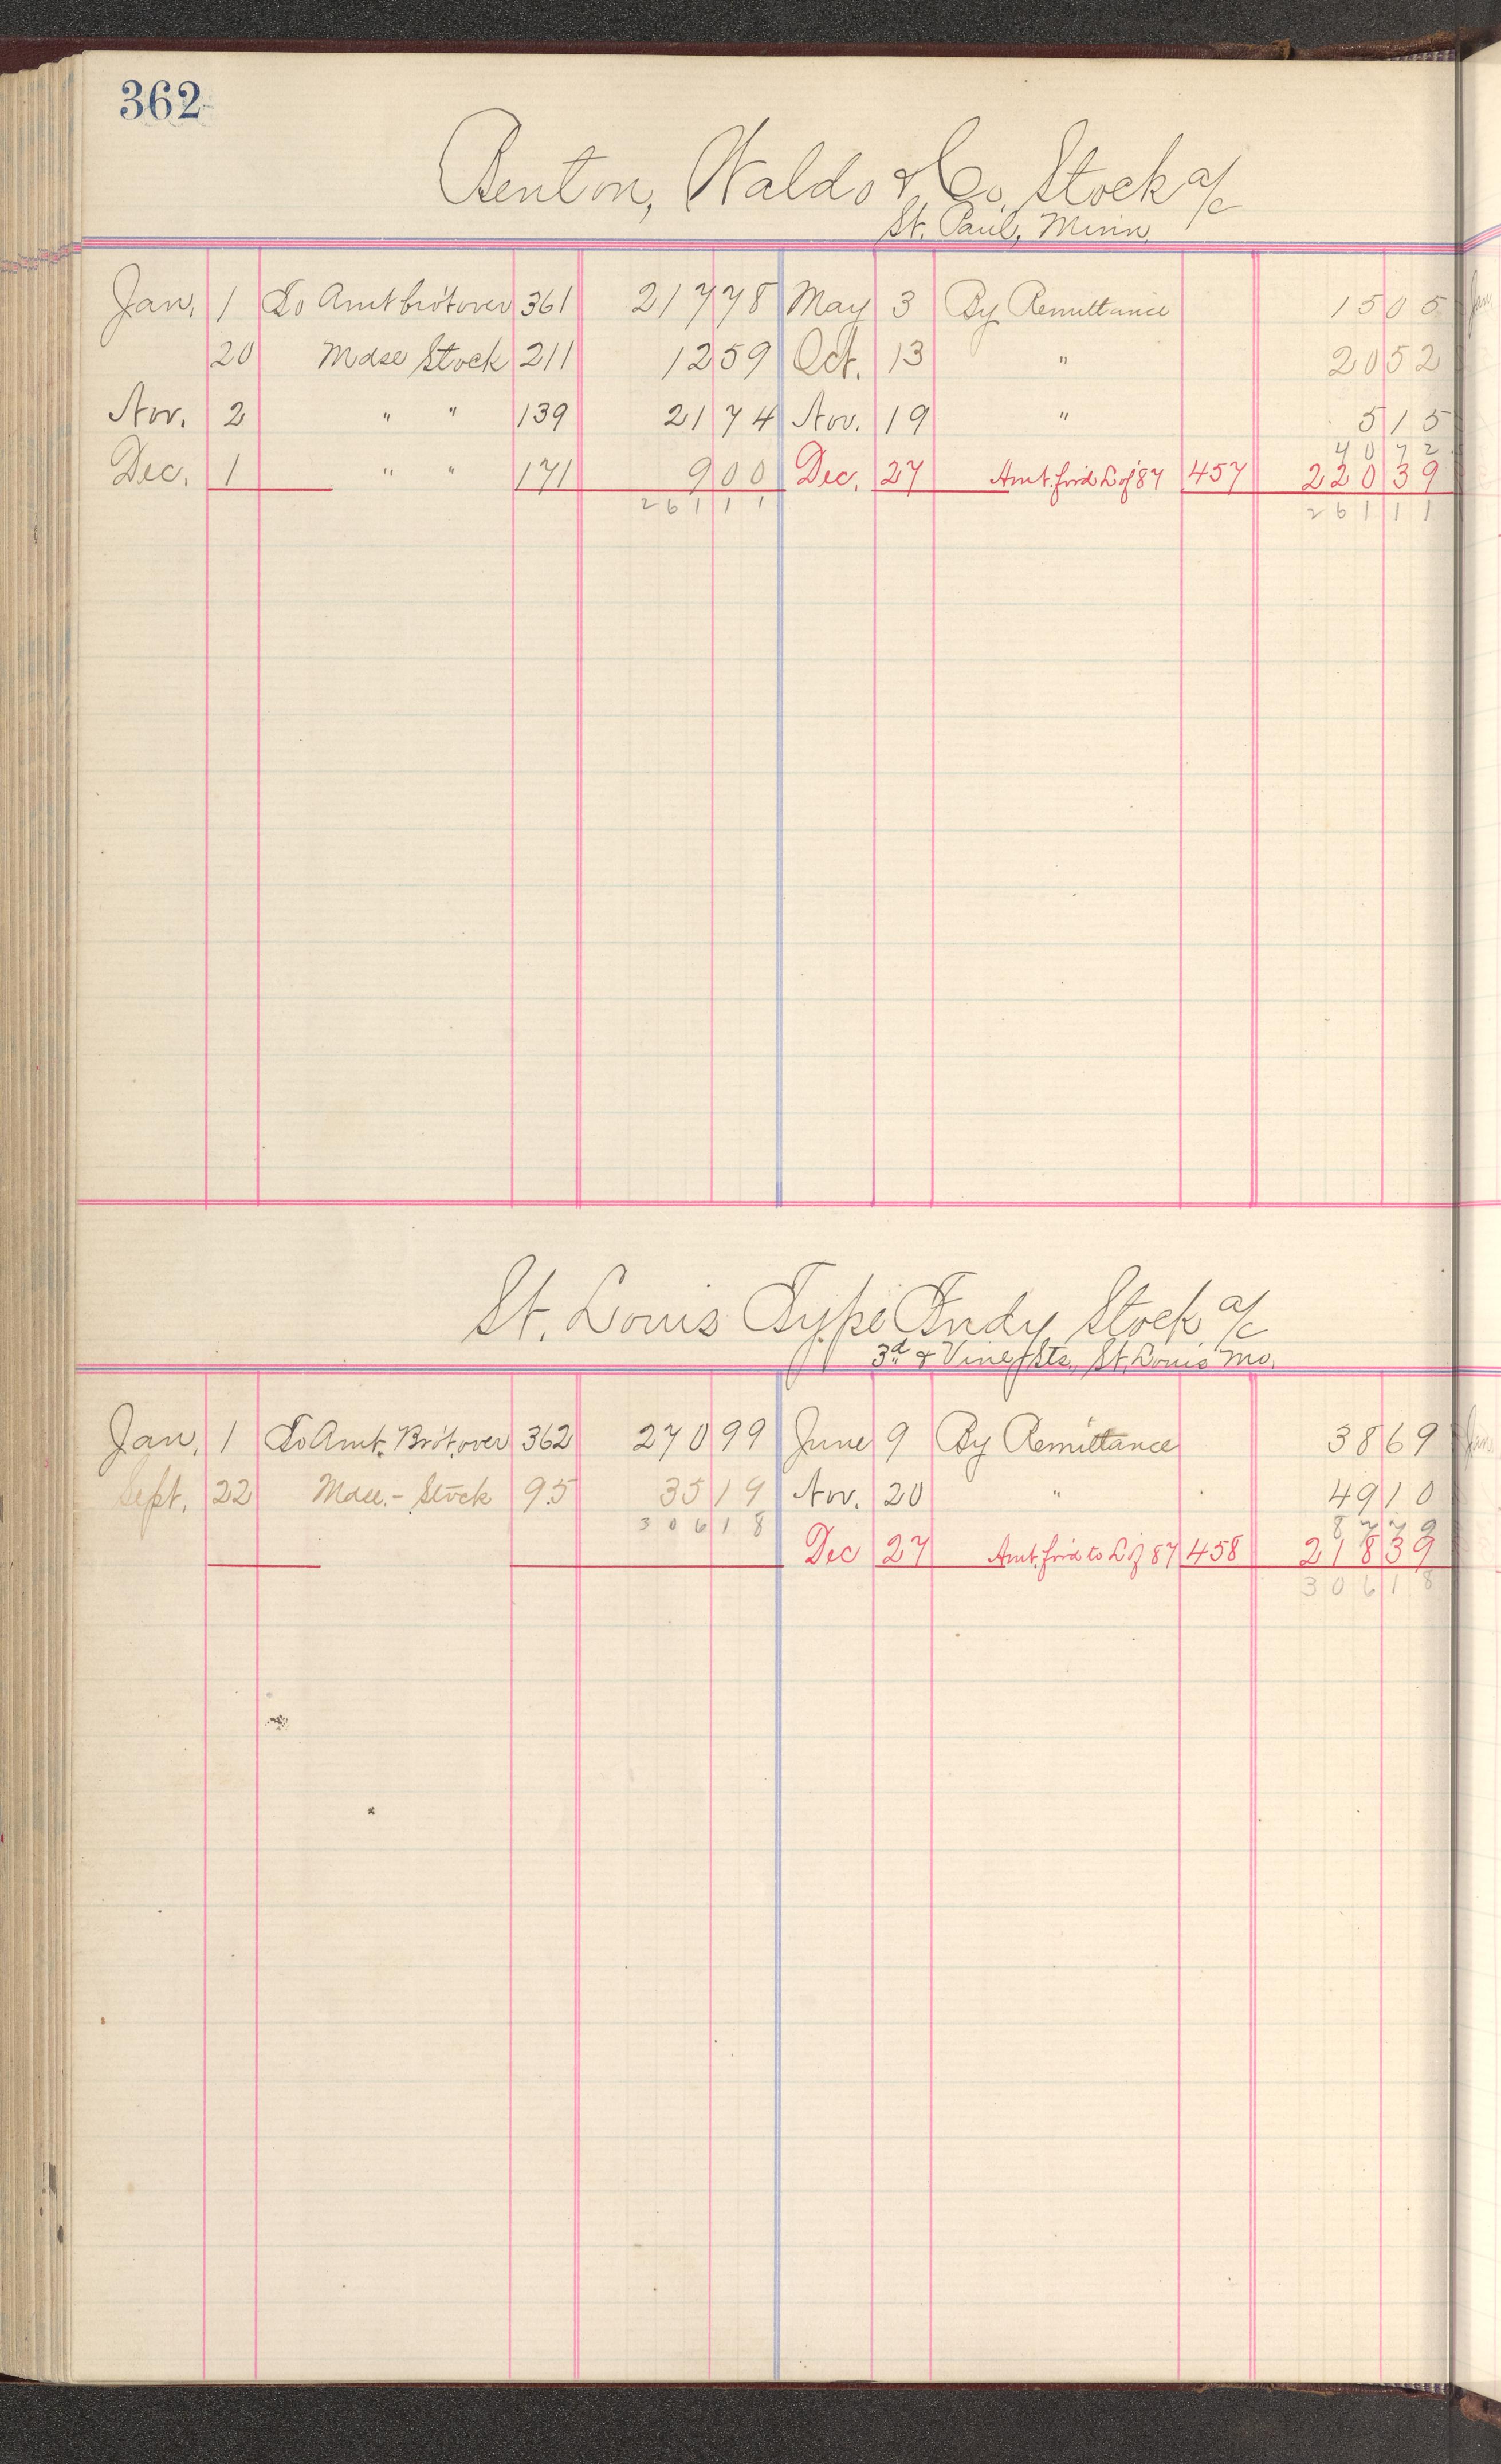 362
Benton, Waldo & Co. Stock a/c
St. Paul, Minn.
Jan. 1 To Amt bro't over 361 217 78 May 3 By Remittance 15 05
20 Mdse Stock 211 12 59 Oct. 13 " 20 52
Nov. 2 " " 139 21 74 Nov. 19 " 5 15
40 72
Dec. 1 " " 171 9 00 Dec. 27 Amt. for'd L of 87 457 220 39
261 11 261 11
St. Louis Type Fndy. Stock a/c
3d & Vine Sts. St. Louis Mo.
Jan. 1 To Amt. Bro't over 362 270 99 June 9 By Remittance 38 69
Sept. 22 Mdse. - Stock 95 35 19 Nov. 20 " 49 10
306 18 87 79
Dec 27 Amt. for'd to L of 87 458 218 39
306 18